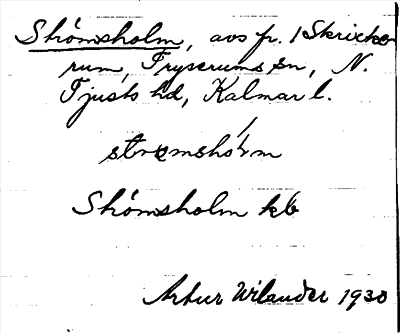 Shömsholm, avs fr. 1 Skricke
rum, Fryserums sn, N.
Tjusts hd, Kalmar l.
strömshörm
Shömsholm kb
Artur Wilander 1930